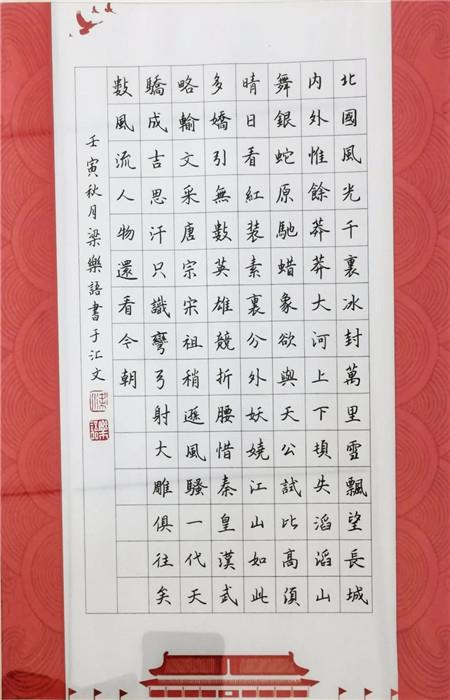 北國風光千裏冰封萬里雪飄望長城
内外惟餘莽莽大河上下頓失滔滔山
舞銀蛇原馳蜡象欲與天公試比高須
晴日看紅装素裏分外妖嬈江山如此
多嬌引無數英雄競折腰惜秦皇漢武
略輸文采唐宗宋祖稍遜風騷一代天
驕成吉思汗只識彎弓射大雕俱往矣
數風流人物還看今朝
壬寅秋月梁樂語書于汇文